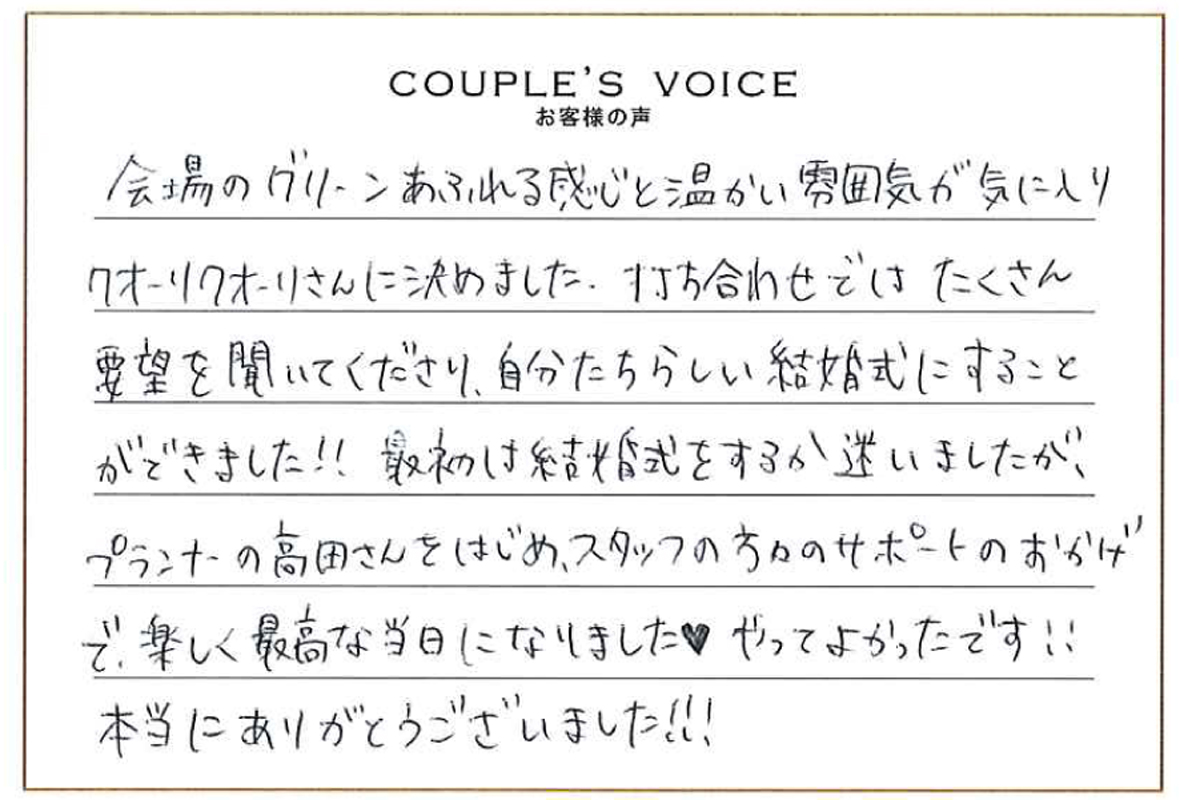 COUPLE'S VOICE
お客様の声
会場のグリーンあふれる感じと温かい雰囲気が気に入り
クオーリクオーリさんに決めました. 打ち合わせでは たくさん
要望を聞いてくださり、自分たちらしい結婚式にすること
ができました!! 最初は結婚式をするか迷いましたが、
プランナーの高田さんをはじめ、スタッフの方々のサポートのおかげ
で、楽しく最高な当日になりました♥ やってよかったです!!
本当にありがとうございました!!!